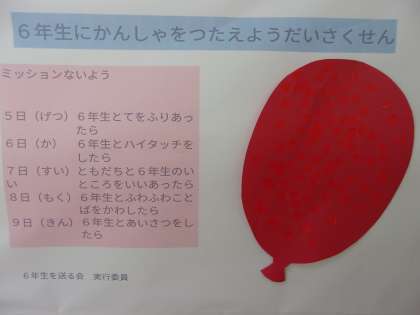 ６年生にかんしゃをつたえようだいさくせん
ミッションないよう
５日（げつ）６年生とてをふりあっ
たら
６日（か）　６年生とハイタッチを
したら
７日（すい）ともだちと６年生のい
い　ところをいいあったら
８日（もく）６年生とふわふわこと
ばをかわしたら
９日（きん）６年生とあいさつをし
たら
６年生を送る会　実行委員